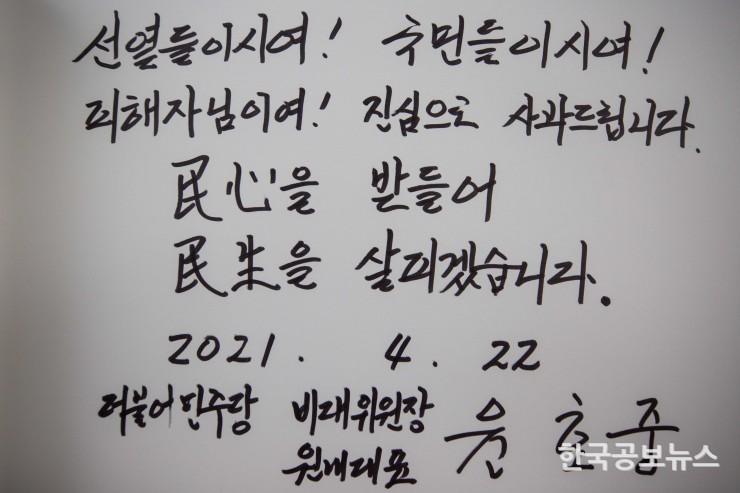 선열들이시여! 국민들이시여!
피해자님이여! 진심으로 사과드립니다.
民心을 받들어
民生을 살피겠습니다.
2021. 4. 22
더불어민주당 비대위원장
원내대표 윤호중
한국공보뉴스